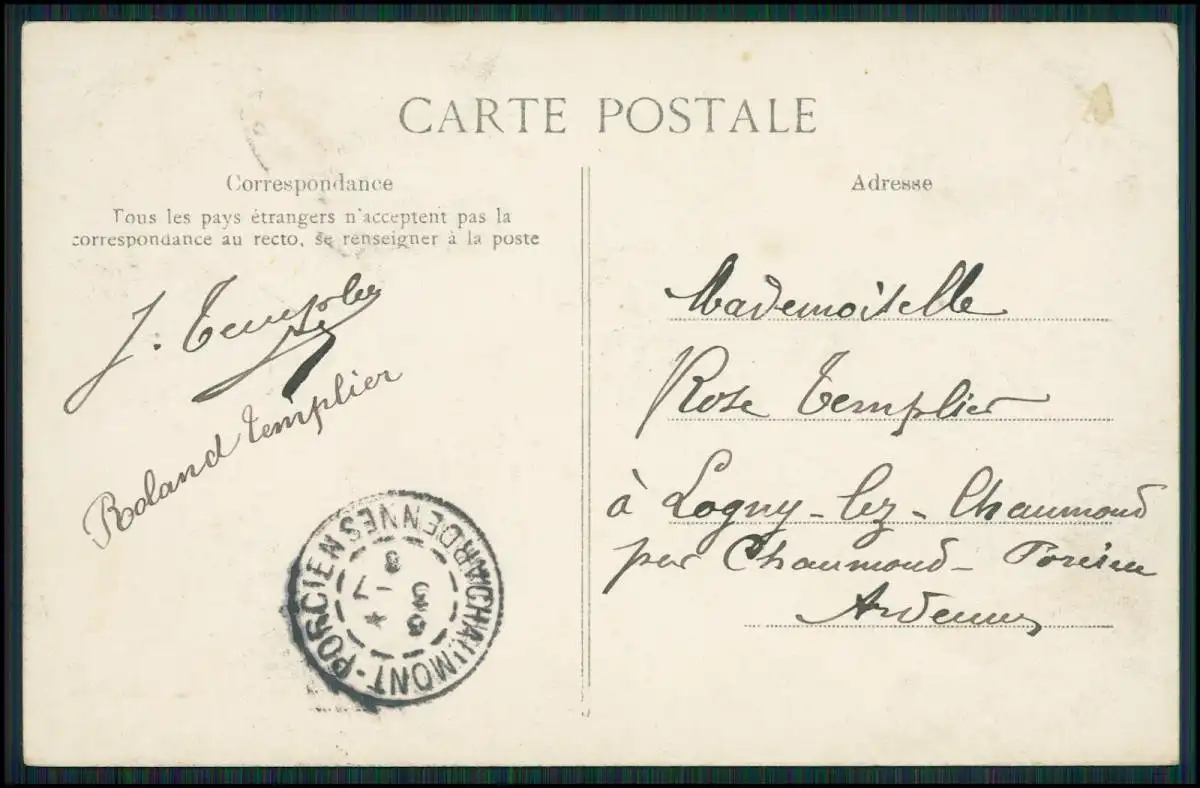 CARTE POSTALE
Correspondance
Tous les pays étrangers n'acceptent pas la
correspondance au recto, se renseigner à la poste
J. Templier
Roland Templier
CHAUMONT-PORCIEN
ARDENNES
Adresse
Mademoiselle
Rose Templier
à Logny-lez-Chaumond
par Chaumond-Porcien
Ardennes